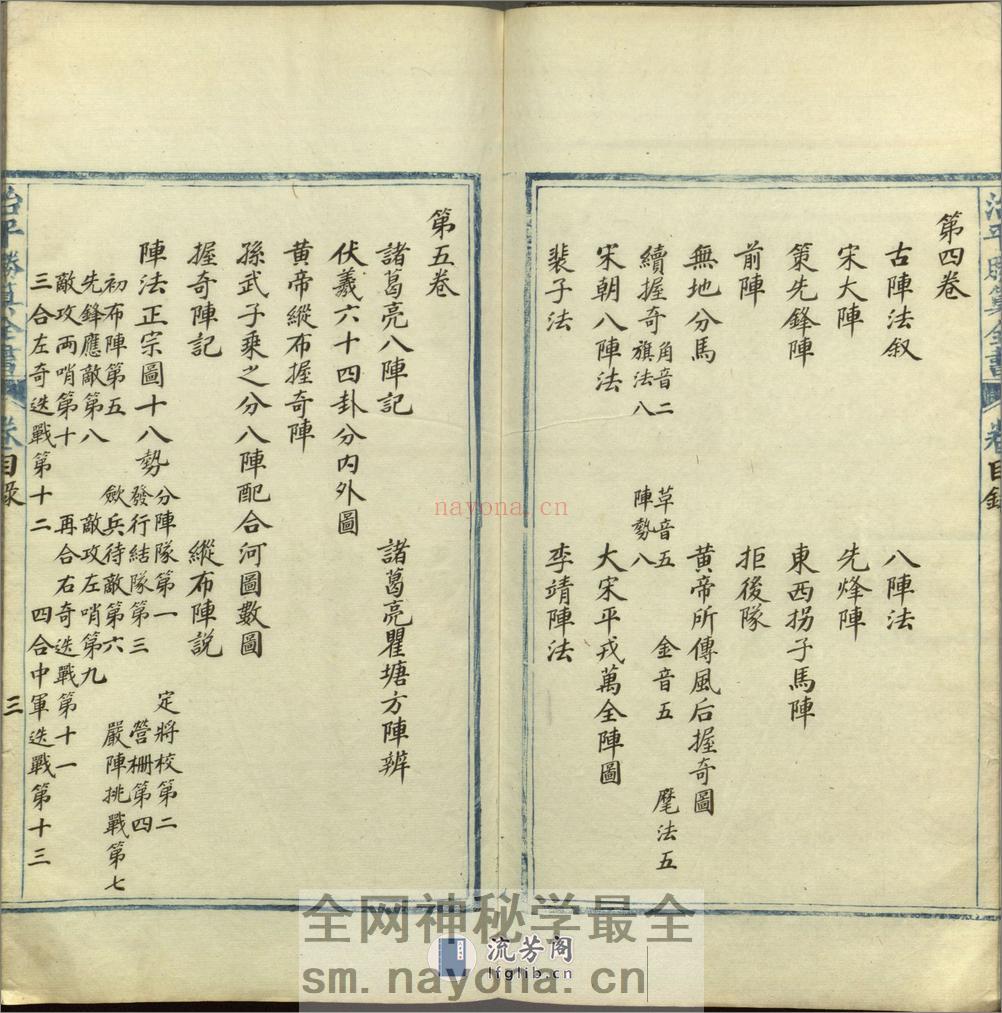 治平勝算全書 卷 目錄
第四卷
古陣法叙 八陣法
宋大陣 先烽陣
策先鋒陣 東西拐子馬陣
前陣 拒後隊
無地分馬 黄帝所傳風后握奇圖
續握奇 角音二 草音五 金音五 麾法五
旗法八 陣勢八
宋朝八陣法 大宋平戎萬全陣圖
裴子法 李靖陣法
第五卷
諸葛亮八陣記 諸葛亮瞿塘方陣辨
伏羲六十四卦分内外圖
黄帝縱布握奇陣
孫武子乘之分八陣配合河圖數圖
握奇陣記 縱布陣説
陣法正宗圖十八勢 分陣隊第一 定將校第二
發行結隊第三 營柵第四
初布陣第五 歛兵待敵第六 嚴陣挑戰第七
先鋒應敵第八 敵攻左哨第九
敵攻两哨第十 再合右奇迭戰第十一
三合左奇迭戰第十二 四合中軍迭戰第十三
治平勝算全書 卷 目録 三
nayona.cn
全网神秘学最全
流芳阁
lfglib.cn
sm.nayona.cn